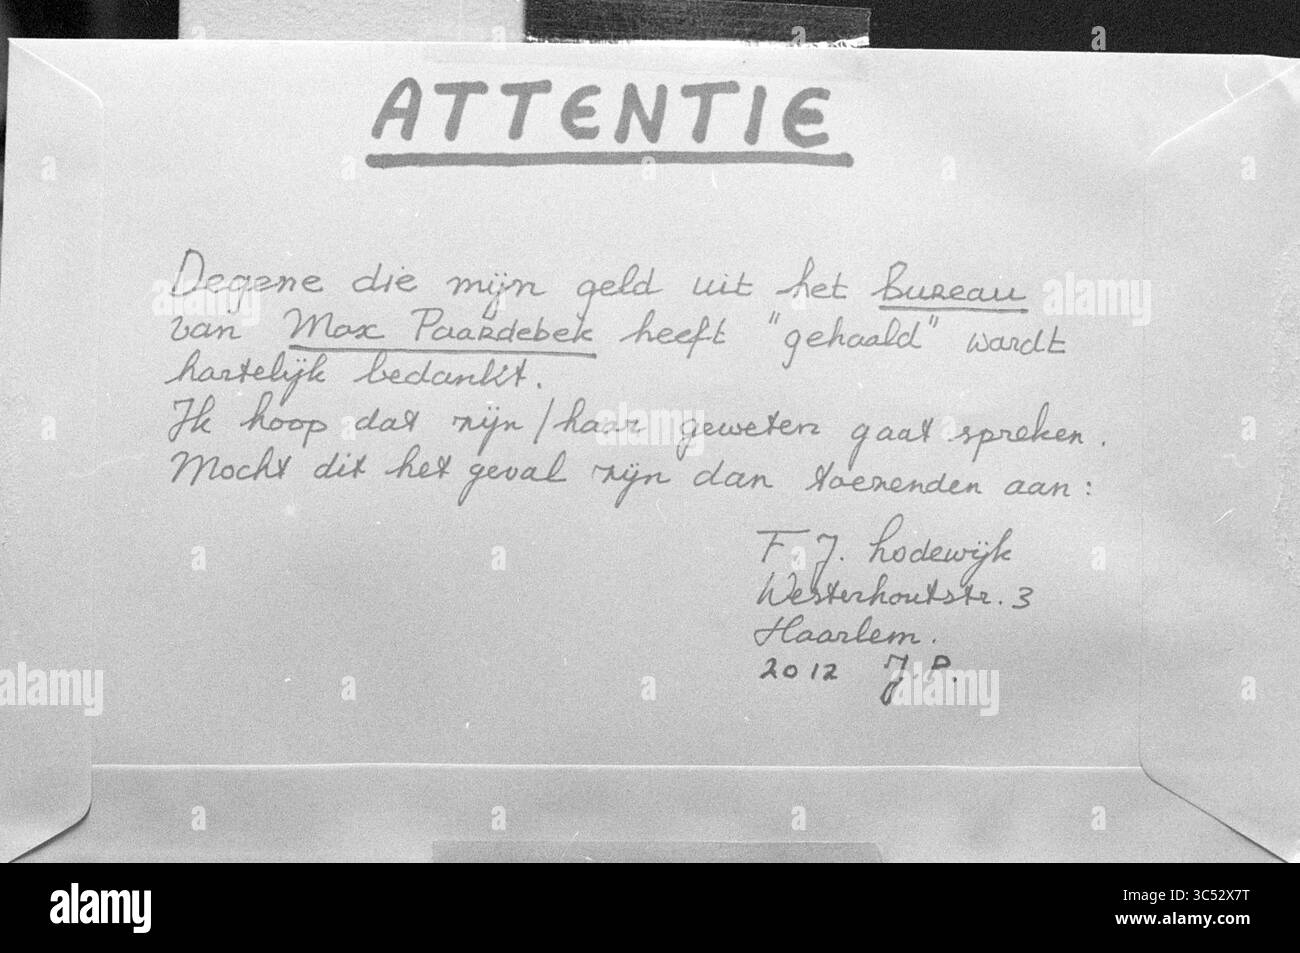 ATTENTIE
Degene die mijn geld uit het Bureau
van Max Paardebek heeft "gehaald" wordt
hartelijk bedankt.
Ik hoop dat zijn/haar geweten gaat spreken.
Mocht dit het geval zijn dan toezenden aan:
F. J. Lodewijk
Westerhoutstr. 3
Haarlem.
2012 J.P.
alamy
Image ID: 3C52X7T
www.alamy.com